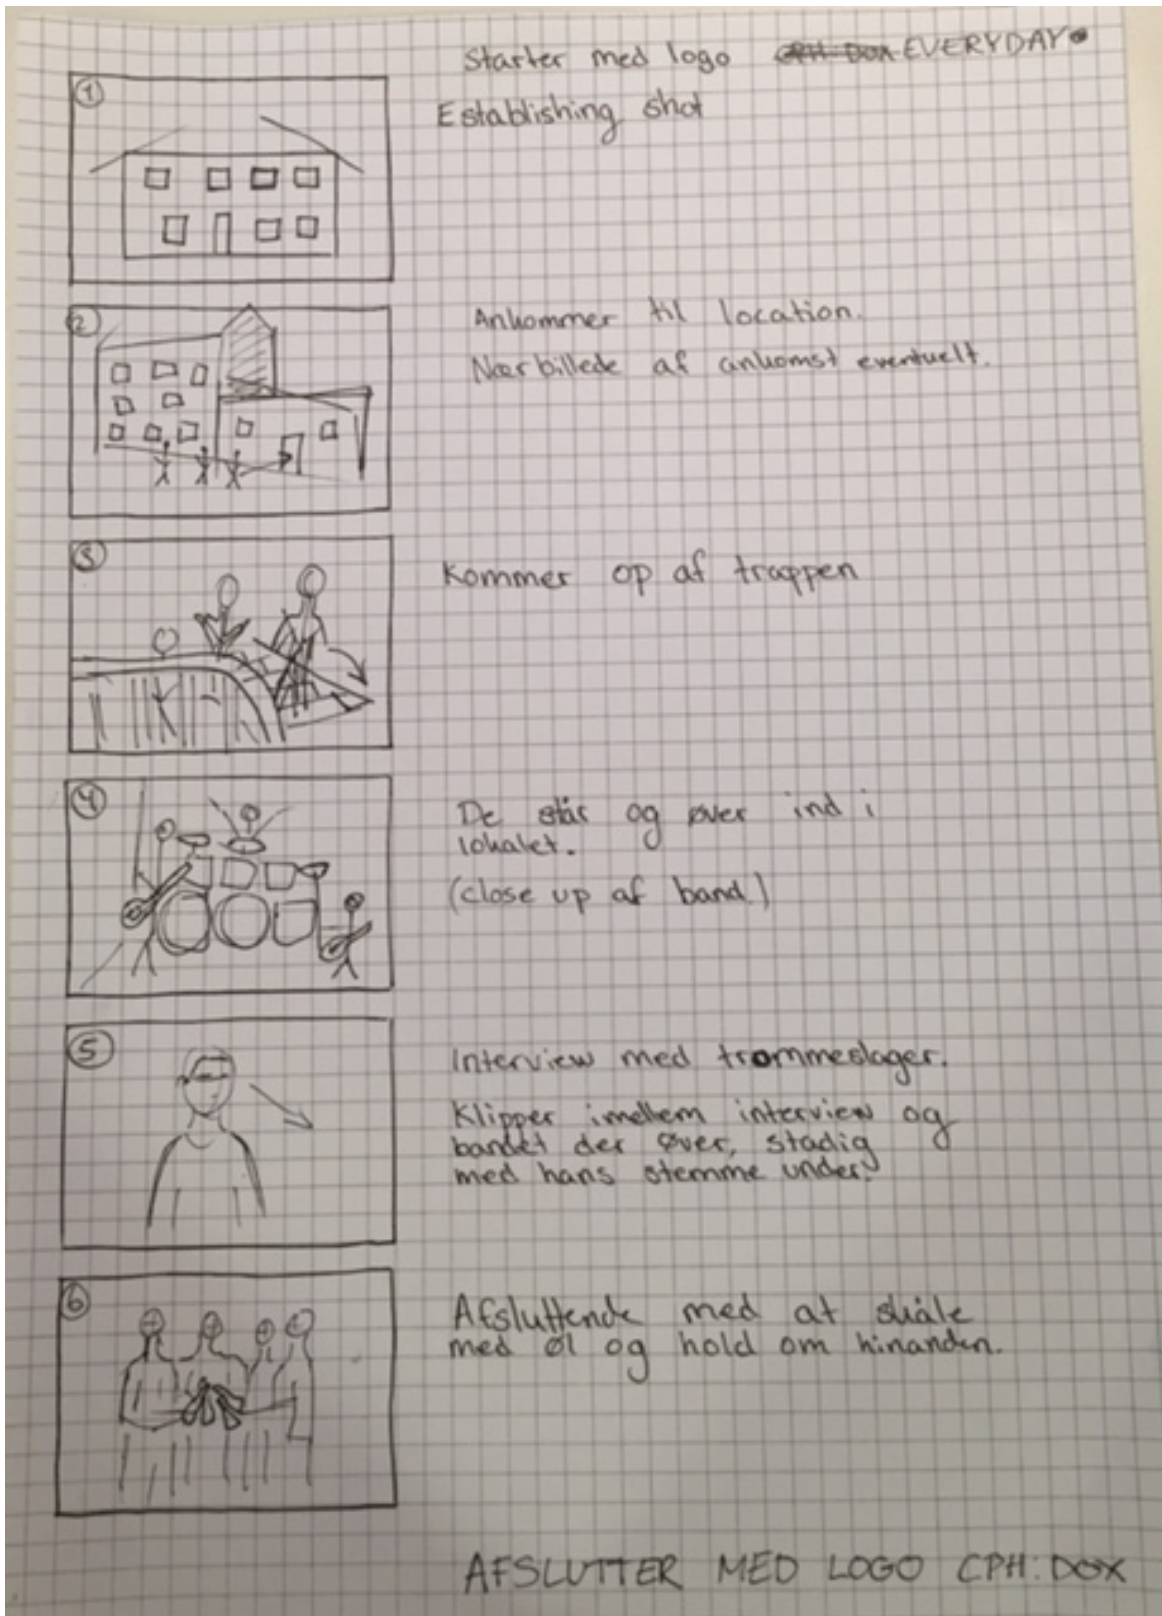 Starter med logo CPH:DOX EVERYDAY
①
Establishing shot
②
Ankommer til location.
Nærbillede af ankomst eventuelt.
③
Kommer op af trappen
④
De står og øver ind i
lokalet.
(close up af band)
⑤
Interview med trommeslager.
Klipper imellem interview og
bandet der øver, stadig
med hans stemme under.
⑥
Afsluttende med at skåle
med øl og hold om hinanden.
AFSLUTTER MED LOGO CPH:DOX